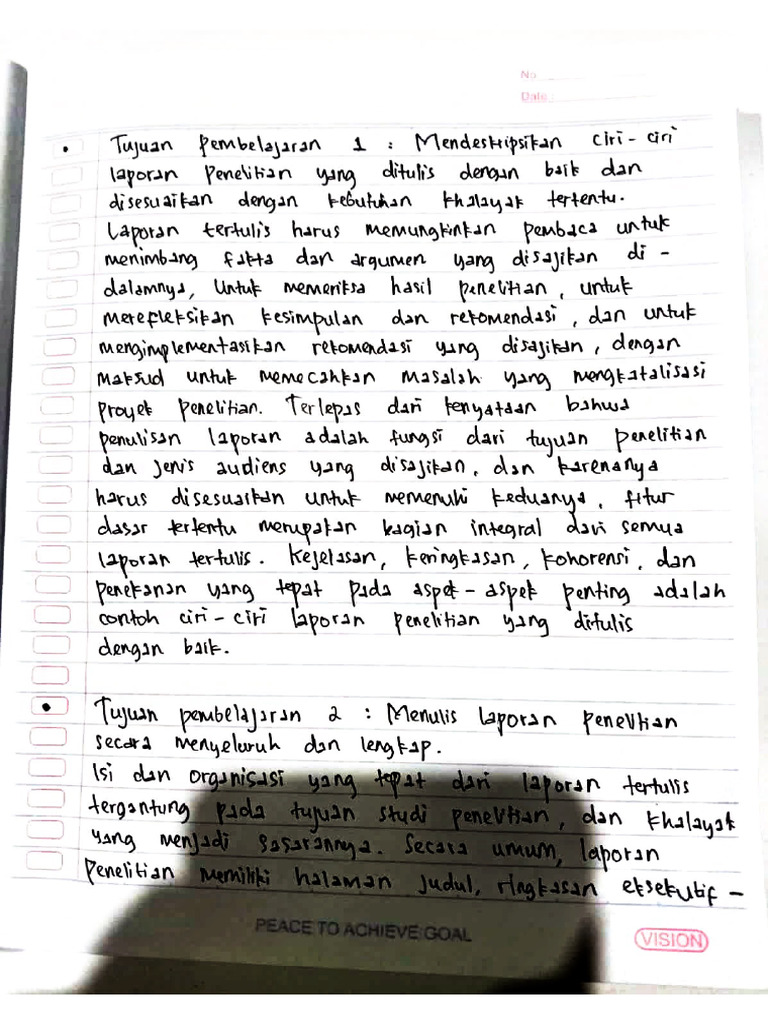 No
Date :
Tujuan pembelajaran 1 : Mendeskripsikan ciri-ciri
laporan penelitian yang ditulis dengan baik dan
disesuaikan dengan kebutuhan khalayak tertentu.
Laporan tertulis harus memungkinkan pembaca untuk
menimbang fakta dan argumen yang disajikan di -
dalamnya, Untuk memeriksa hasil penelitian, untuk
merefleksikan kesimpulan dan rekomendasi, dan untuk
mengimplementasikan rekomendasi yang disajikan, dengan
maksud untuk memecahkan masalah yang mengkatalisasi
proyek penelitian. Terlepas dari kenyataan bahwa
penulisan laporan adalah fungsi dari tujuan penelitian
dan jenis audiens yang disajikan, dan karenanya
harus disesuaikan untuk memenuhi keduanya, fitur
dasar tertentu merupakan bagian integral dari semua
laporan tertulis. Kejelasan, keringkasan, kohorensi, dan
penekanan yang tepat pada aspek-aspek penting adalah
contoh ciri-ciri laporan penelitian yang ditulis
dengan baik.
Tujuan pembelajaran 2 : Menulis laporan penelitian
secara menyeluruh dan lengkap.
Isi dan organisasi yang tepat dari laporan tertulis
tergantung pada tujuan studi penelitian, dan khalayak
yang menjadi sasarannya. Secara umum, laporan
Penelitian memiliki halaman judul, ringkasan eksekutif -
PEACE TO ACHIEVE GOAL
VISION